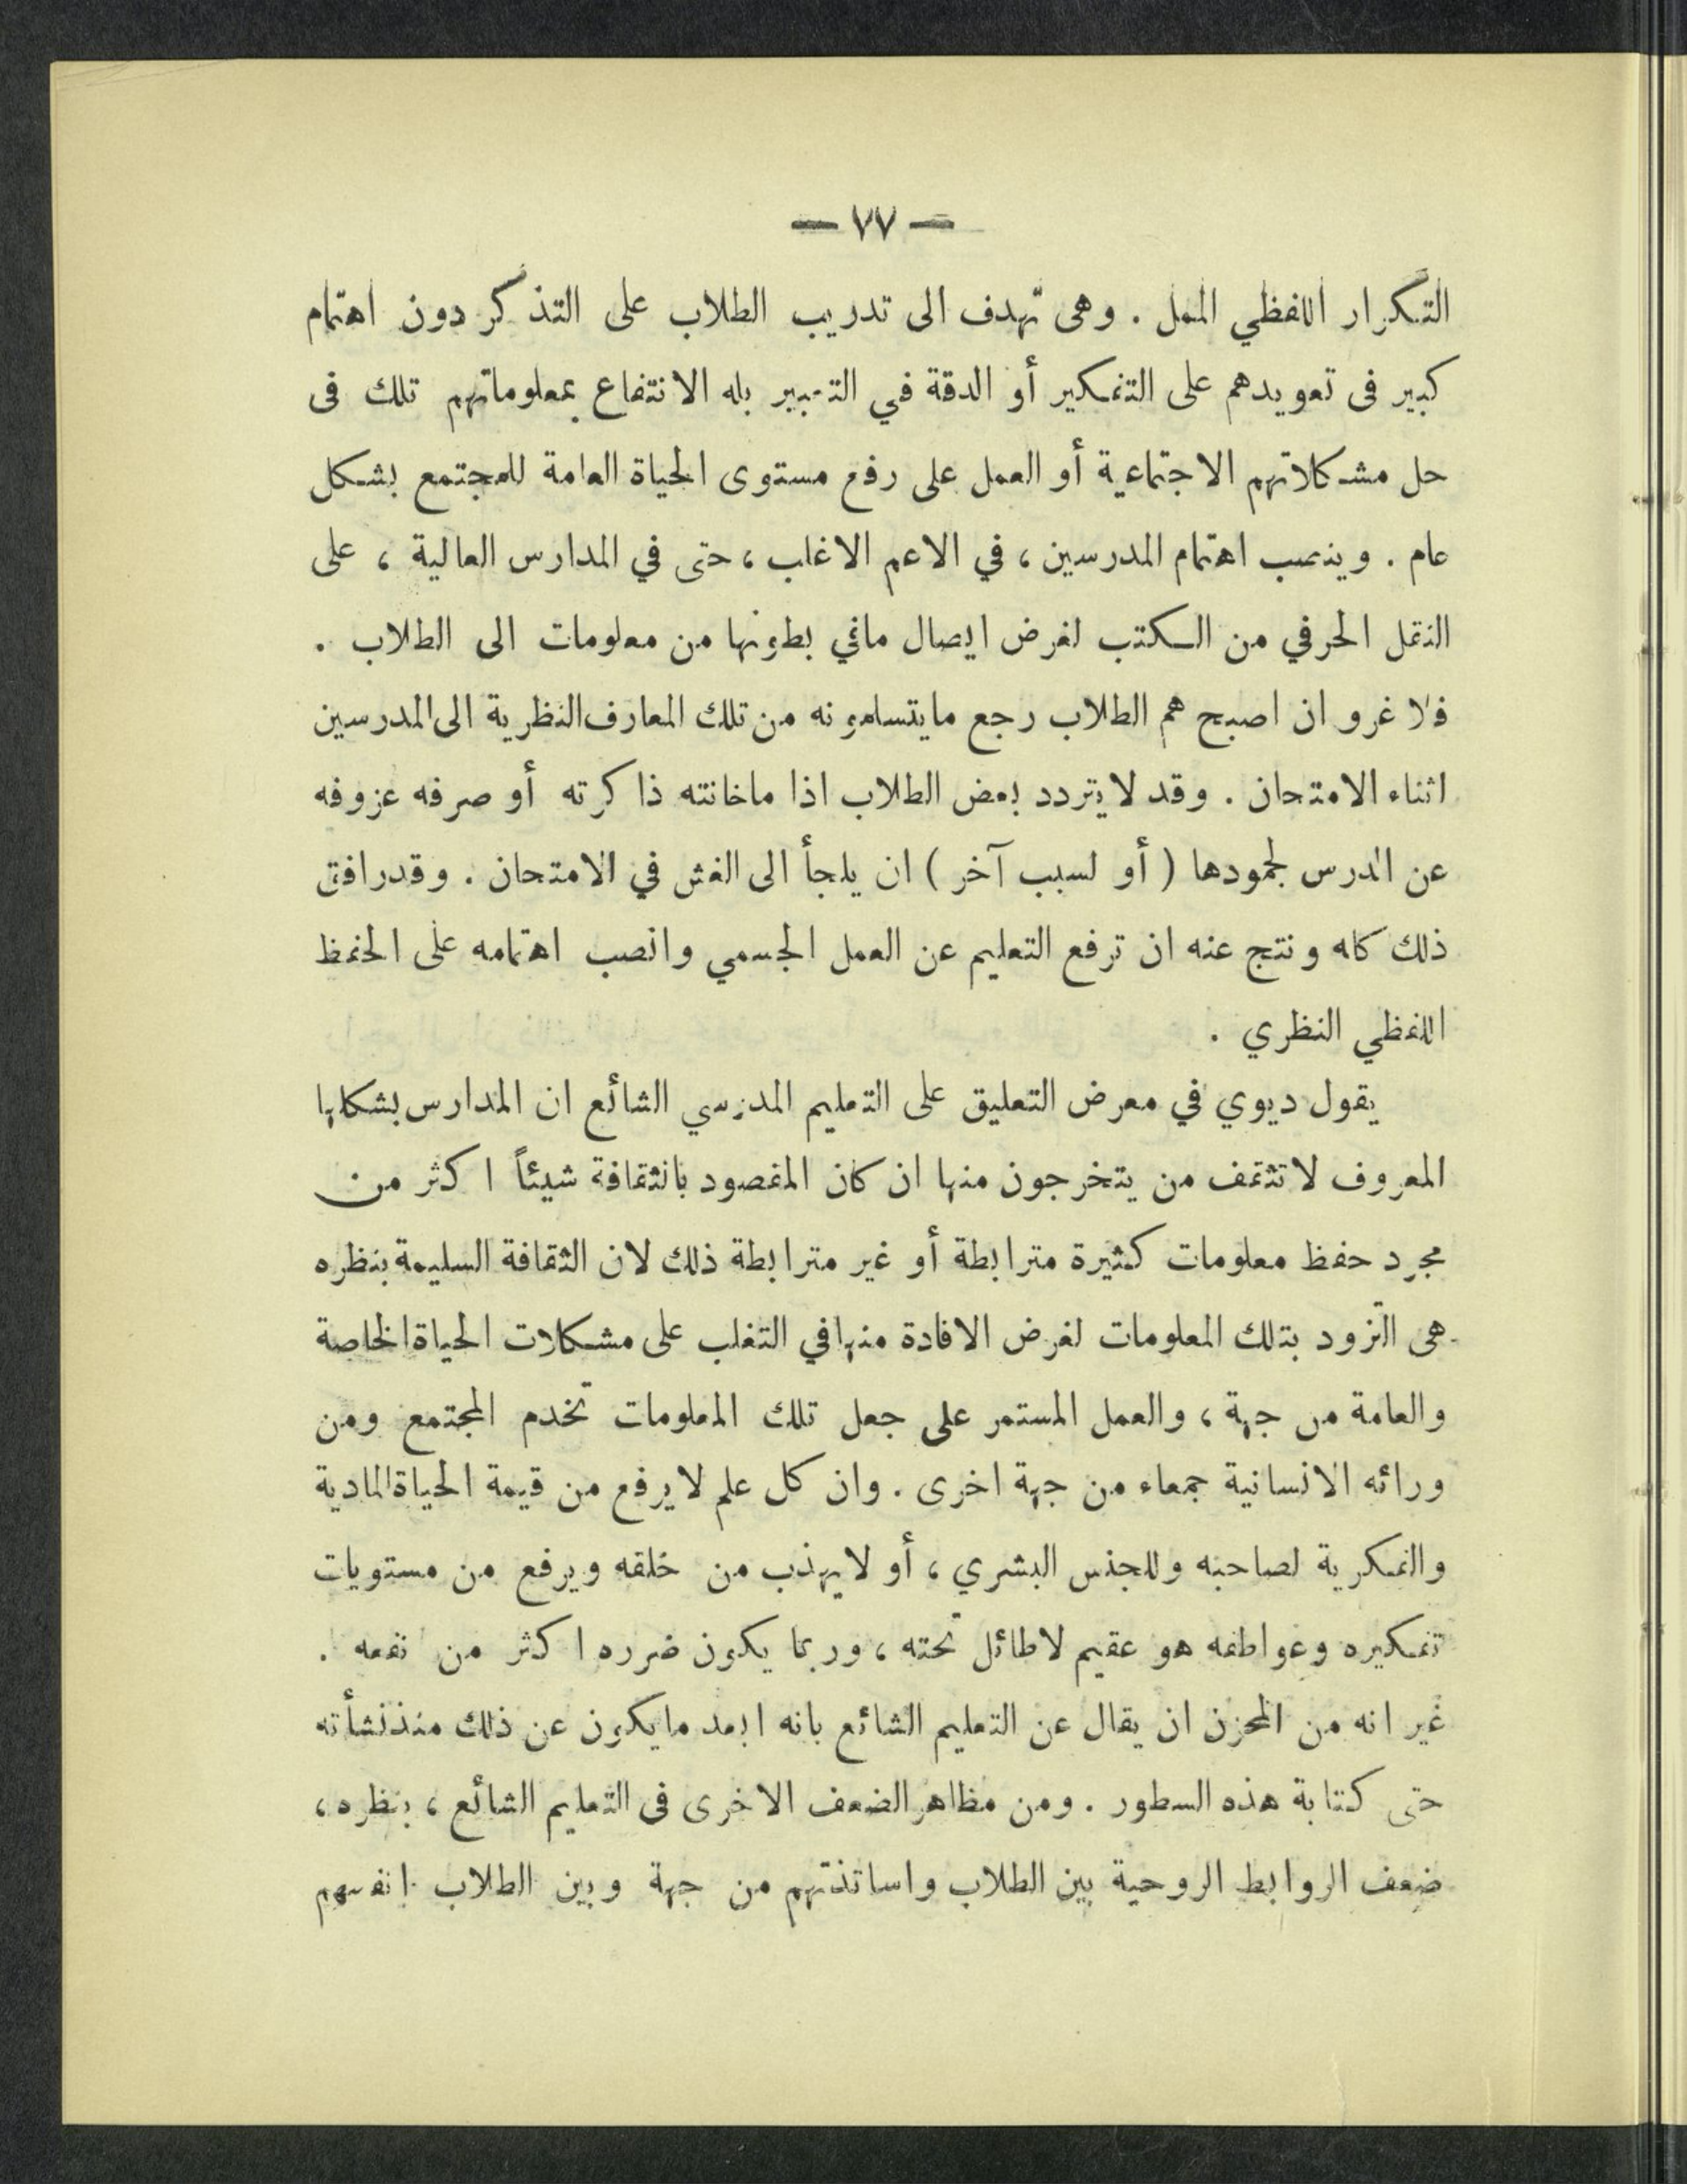 — ٧٧ —
التكرار اللفظي الممل . وهى تهدف الى تدريب الطلاب على التذكر دون اهتمام
كبير فى تعويدهم على التفكير أو الدقة في التعبير بله الانتفاع بمعلوماتهم تلك فى
حل مشكلاتهم الاجتماعية أو العمل على رفع مستوى الحياة العامة للمجتمع بشكل
عام . وينصب اهتمام المدرسين ، في الاعم الاغلب ، حتى في المدارس العالية ، على
النقل الحرفي من الكتب لغرض ايصال مافي بطونها من معلومات الى الطلاب .
فلا غرو ان اصبح هم الطلاب رجع مايتسلمونه من تلك المعارف النظرية الى المدرسين
اثناء الامتحان . وقد لايتردد بعض الطلاب اذا ماخانته ذاكرته أو صرفه عزوفه
عن الدرس لجمودها ( أو لسبب آخر ) ان يلجأ الى الغش في الامتحان . وقد رافق
ذلك كله ونتج عنه ان ترفع التعليم عن العمل الجسمي وانصب اهتمامه على الحفظ
اللفظي النظري .
يقول ديوي في معرض التعليق على التعليم المدرسي الشائع ان المدارس بشكلها
المعروف لاتثقف من يتخرجون منها ان كان المقصود بالثقافة شيئاً اكثر من
مجرد حفظ معلومات كثيرة مترابطة أو غير مترابطة ذلك لان الثقافة السليمة بنظره
هى التزود بتلك المعلومات لغرض الافادة منها في التغلب على مشكلات الحياة الخاصة
والعامة من جهة ، والعمل المستمر على جعل تلك المعلومات تخدم المجتمع ومن
ورائه الانسانية جمعاء من جهة اخرى . وان كل علم لايرفع من قيمة الحياة المادية
والفكرية لصاحبه وللجنس البشري ، أو لايهذب من خلقه ويرفع من مستويات
تفكيره وعواطفه هو عقيم لاطائل تحته ، وربما يكون ضرره اكثر من نفعه .
غير انه من المحزن ان يقال عن التعليم الشائع بانه ابعد مايكون عن ذلك منذ نشأته
حتى كتابة هذه السطور . ومن مظاهر الضعف الاخرى فى التعليم الشائع ، بنظره ،
ضعف الروابط الروحية بين الطلاب واساتذتهم من جهة وبين الطلاب انفسهم